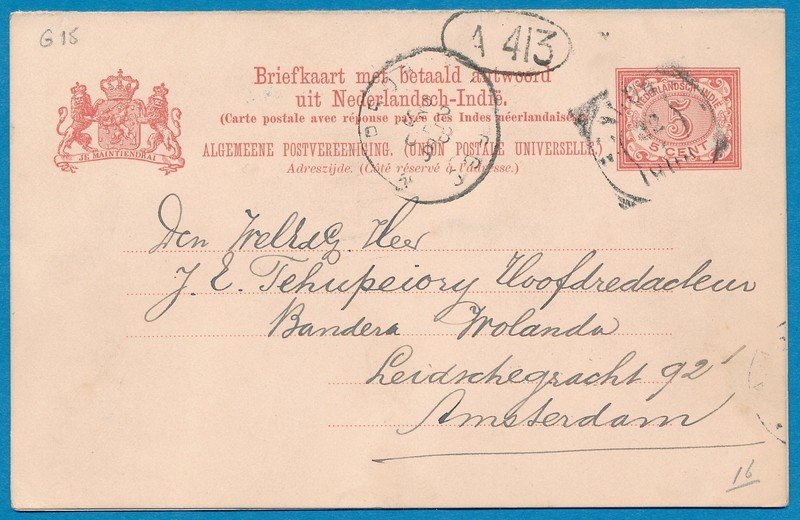 G 18
A 413
Briefkaart met betaald antwoord
uit Nederlandsch-Indië.
(Carte postale avec réponse payée des Indes néerlandaises.)
ALGEMEENE POSTVEREENIGING. (UNION POSTALE UNIVERSELLE.)
Adreszijde. (Côté réservé à l'adresse.)
JE MAINTIENDRAI
NEDERLANDSCH-INDIË
5
5 CENT
Den WelEdG. Heer
J. E. Tehupeiory Hoofdredacteur
Bandera Wolanda
Leidschegracht 92'
Amsterdam
16